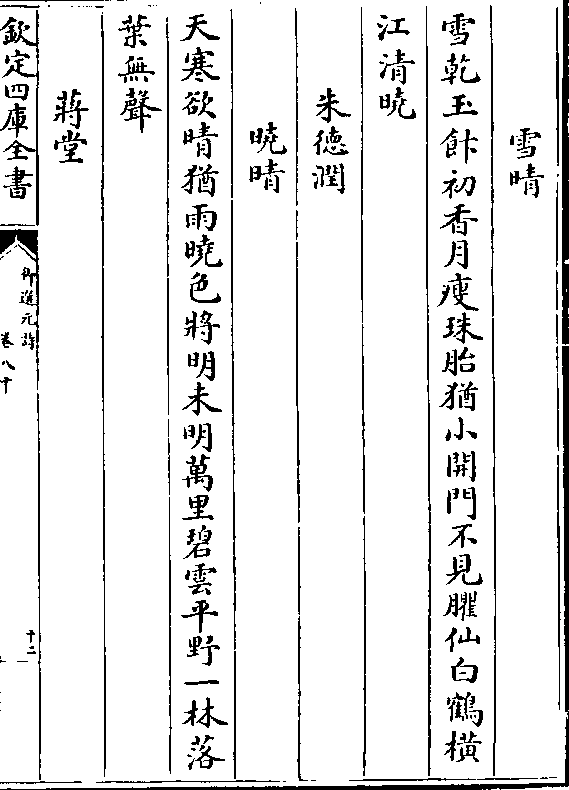 雪晴
雪乾玉飰初香月瘦珠胎猶小開門不見臞仙白鶴橫
江清曉
朱德潤
曉晴
天寒欲晴猶雨曉色將明未明萬里碧雲平野一林落
葉無聲
蔣堂
欽定四庫全書
御選元詩
卷八十
十二